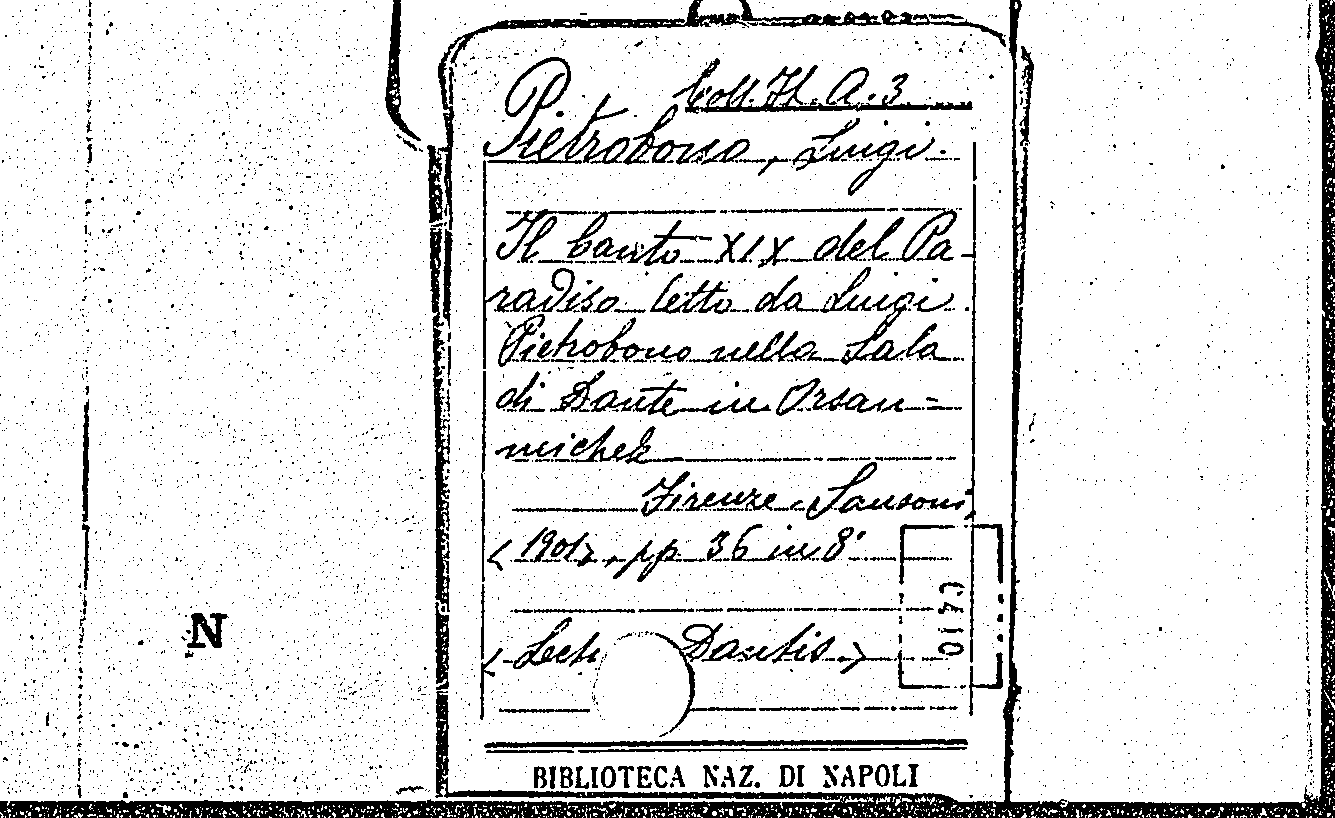 Coll. It. A. 3
Pietrobono, Luigi.
Il Canto XIX del Pa-
radiso letto da Luigi
Pietrobono nella Sala
di Dante in Orsan-
michele
Firenze, Sansoni,
<1901>, pp 36 in 8°
<Lect Dantis.>
N
BIBLIOTECA NAZ. DI NAPOLI